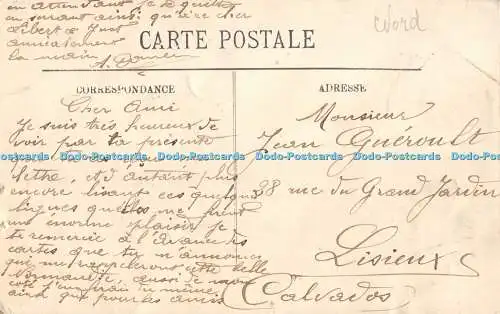 en attendant je te quitte
en serrant ainsi qu'à ce cher
Albert & Just
amicalement
la main
Nord
CARTE POSTALE
CORRESPONDANCE
ADRESSE
Cher Ami
Je suis très heureux de
voir par ta présente
et d'autant plus
encore lisant ces quelques
lignes qu'elles me font
une énorme plaisir je
te remercie à l'avance des
cartes que tu m'annonces
qui me rapprocheront cette belle
Normandie, aussi je
même
ainsi que pour les amis
Monsieur
Jean Guéroult
38 rue du Grand Jardin
Lisieux
Calvados
Dodo-Postcards Dodo-Postcards Dodo-Postcards Dodo-Postcards Dodo-Postcards